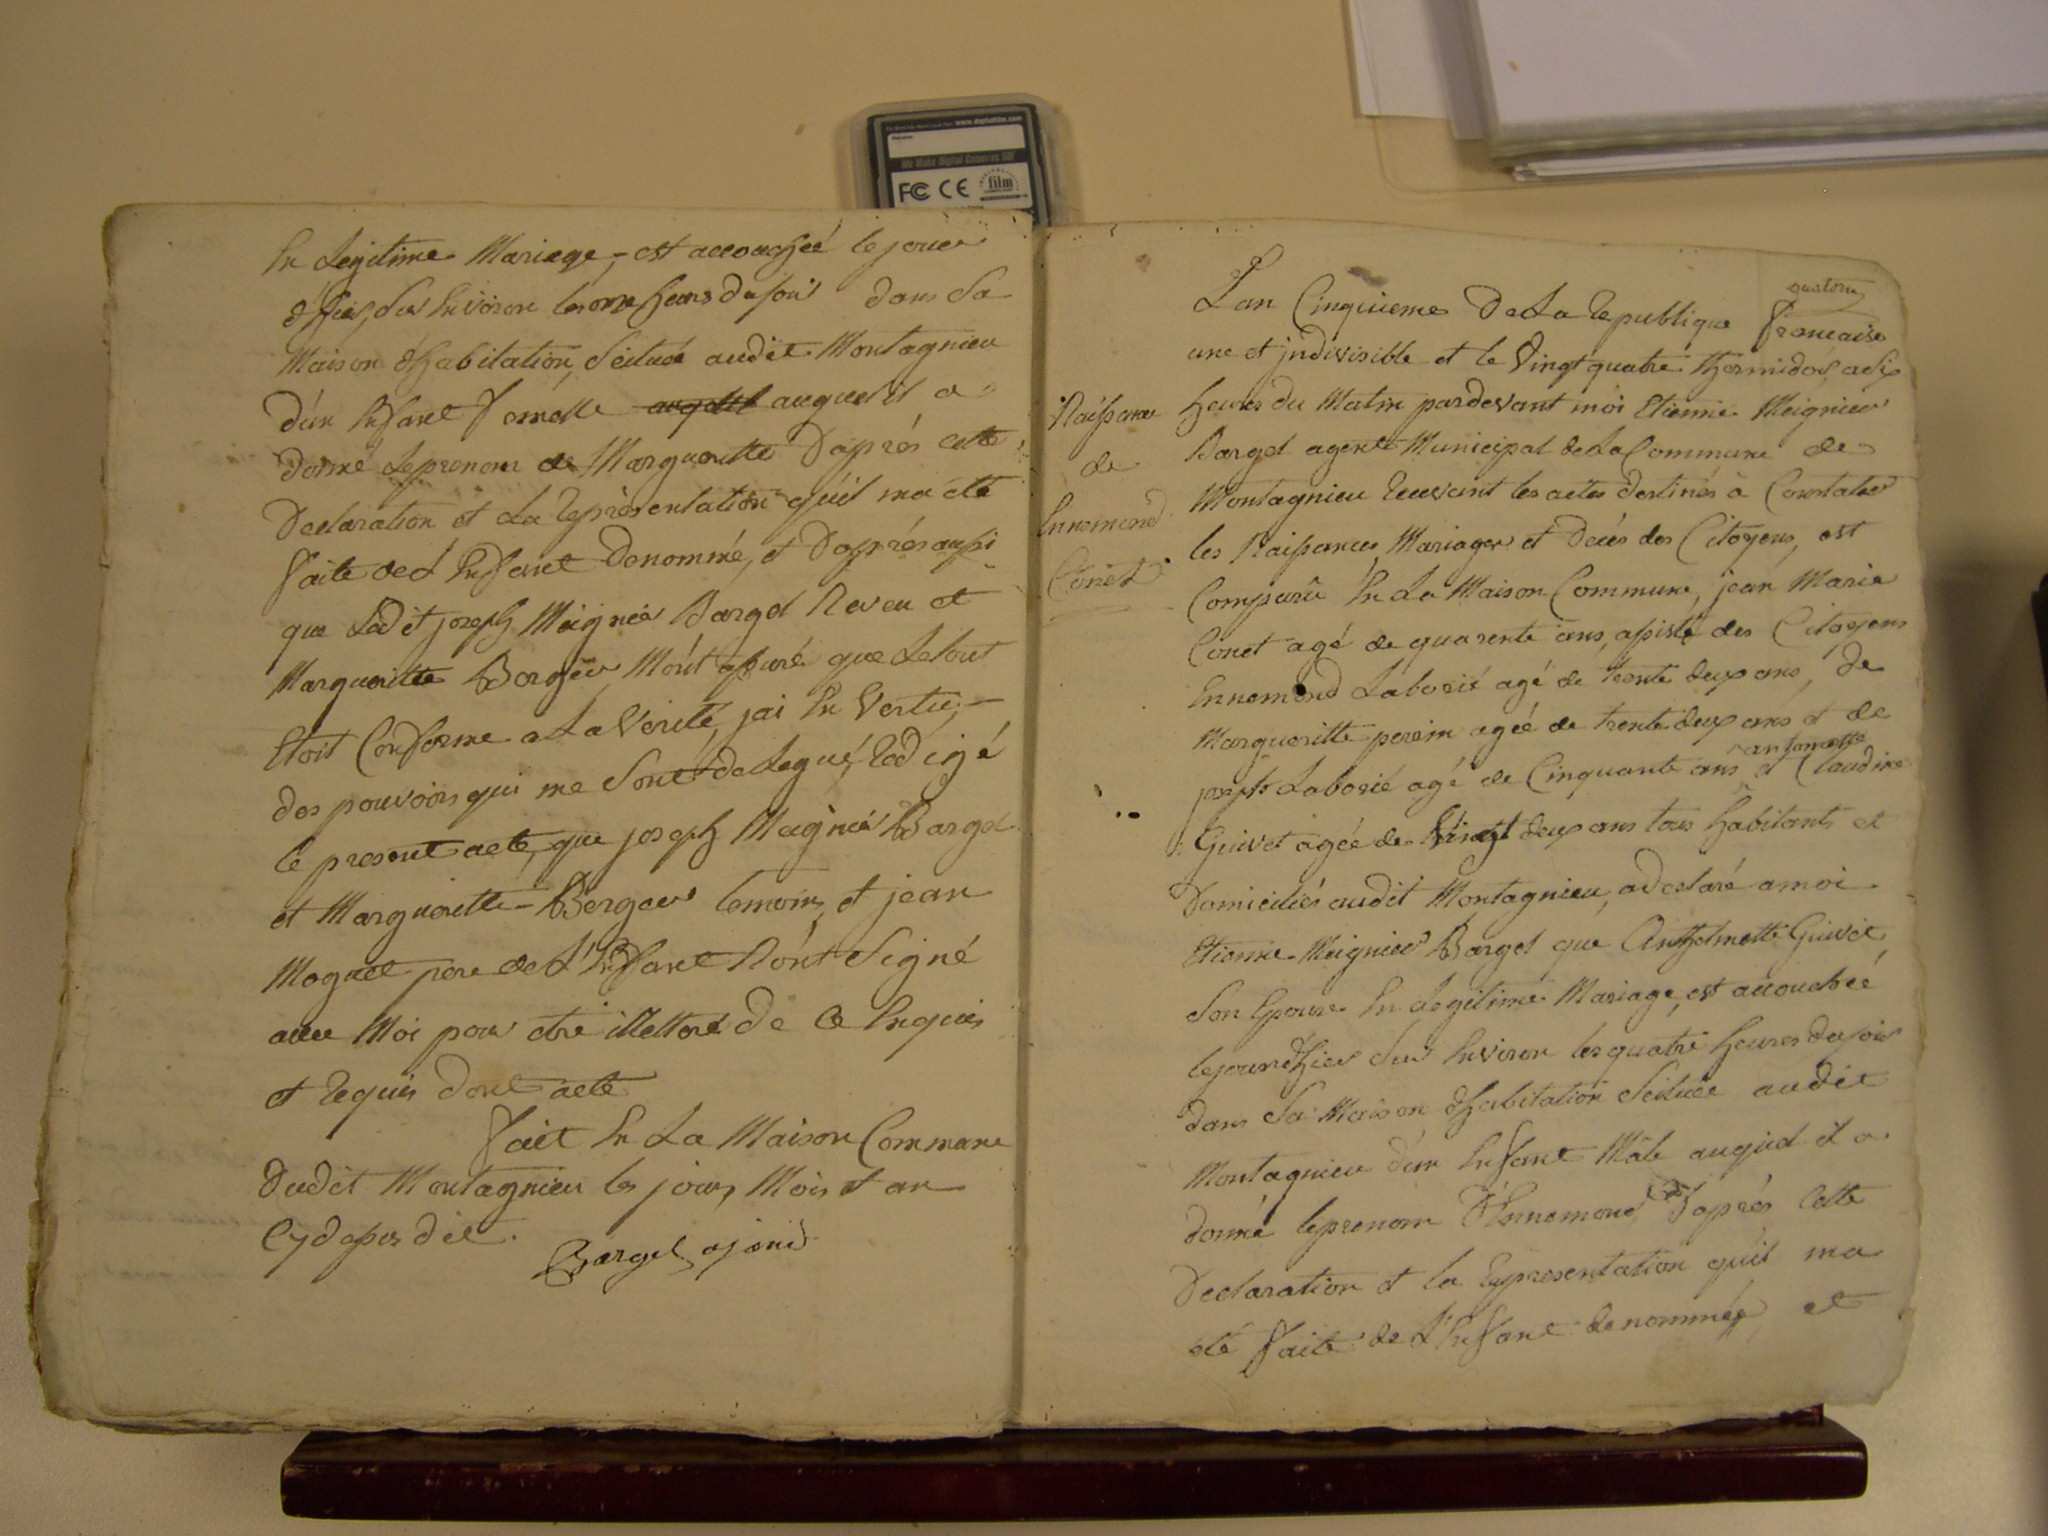 www.dophofilm.com
We Make Digital Cameras SD!
FC CE film
En Legitime Mariage, est accouchéé le jour
d'hier, sur Environ les onze heurs du soir dans Sa
Maison d'habitation, Scituéé audit Montagnieu
d'un Enfant femelle auquel il a
donné Leprenom de Margueritte D'aprés cette
Declaration et La représentation qu'il ma été
faite de L'Enfant Denommé, et D'aprés aussi
que Ledit joseph Meignier Bargel Neveu et
Margueritte Berger M'ónt assuré que Letout
Etoit Conforme a La Verité, jai En Vertu,
des pouvoirs qui me Sont delegué, Redigé
le present acte, que joseph Meignier Bargel
et Margueritte Berger temoins, et jean
Moguet pere de L'Enfant N'ónt Signé
avec Moi pour etre illettoré de Ce Enquis
et Requis dont acte
fait En La Maison Commune
Dudit Montagnieu les jour, Mois et an
Cydessus dit.
Bargel ajoint
quatorze
L'an Cinquieme De La republique française
une et jndivisible et le Vingt quatre thermidor, a dix
heures du Matin pardevant moi Etienne Meignier
Bargel agent Municipal de La Commune de
Montagnieu Recevant les actes destinés à Constater
les Naissances, Mariages et Decés des Citoyens, est
Comparû En La Maison Commune, jean Marie
Conet agé de quarente ans, assisté des Citoyens
Ennemond Laborié agé de trente deux ans, de
Margueritte perrin agéé de trente deux ans et de
joseph Laborié agé de Cinquante ans et antoinette Claudine
Guivet agéé de Vingt deux ans tous habitants et
Domiciliés audit Montagnieu, a declaré a moi
Etienne Meignier Bargel que Anthelmette Guivet
Son Epouse En Legitime Mariage, est accouchéé
lejour d'hier Sur Environ les quatre heures du soir
dans Sa Maison d'habitation Scituéé audit
Montagnieu d'un Enfant Mâle auquel il a
donné leprenom d'Ennemond D'aprés Cette
Declaration et la Representation qu'il ma
été faite de L'Enfant denommé, et
Naissance
de
Ennemond
Conet